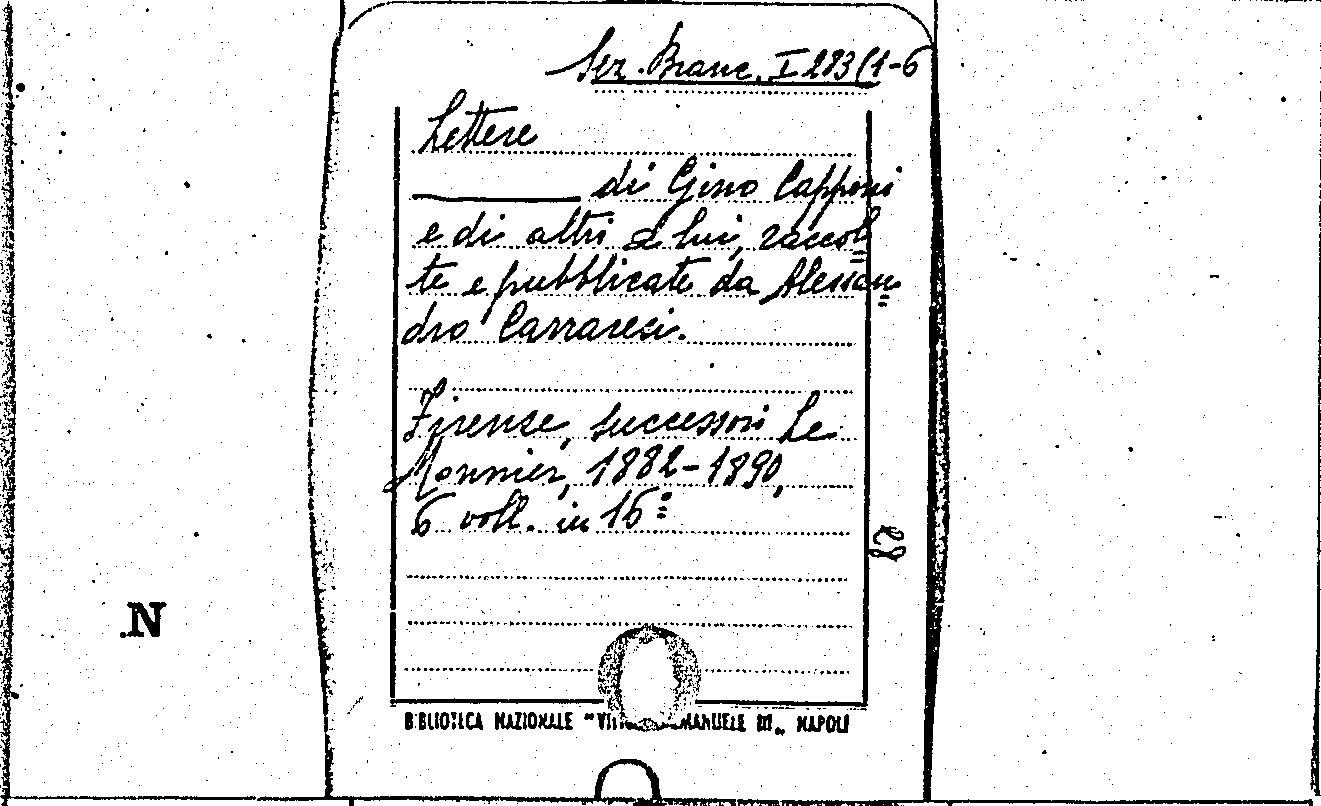 Sez. Branc. I 283 (1-6
Lettere
di Gino Capponi
e di altri a lui, raccol=
te e pubblicate da Alessan=
dro Carraresi.
Firenze, successori Le
Monnier, 1882-1890,
6 voll. in 16º
82
N
BIBLIOTECA NAZIONALE "VIT MANUELE III„ NAPOLI